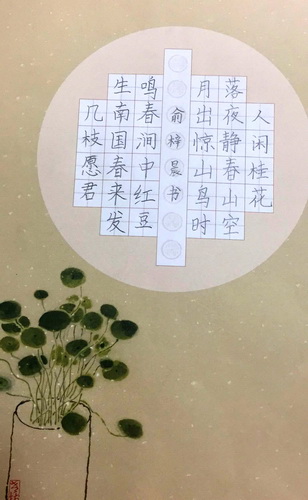 人闲桂花
落夜静春山空
月出惊山鸟时
俞梓晨书
鸣春涧中红豆
生南国春来发
几枝愿君